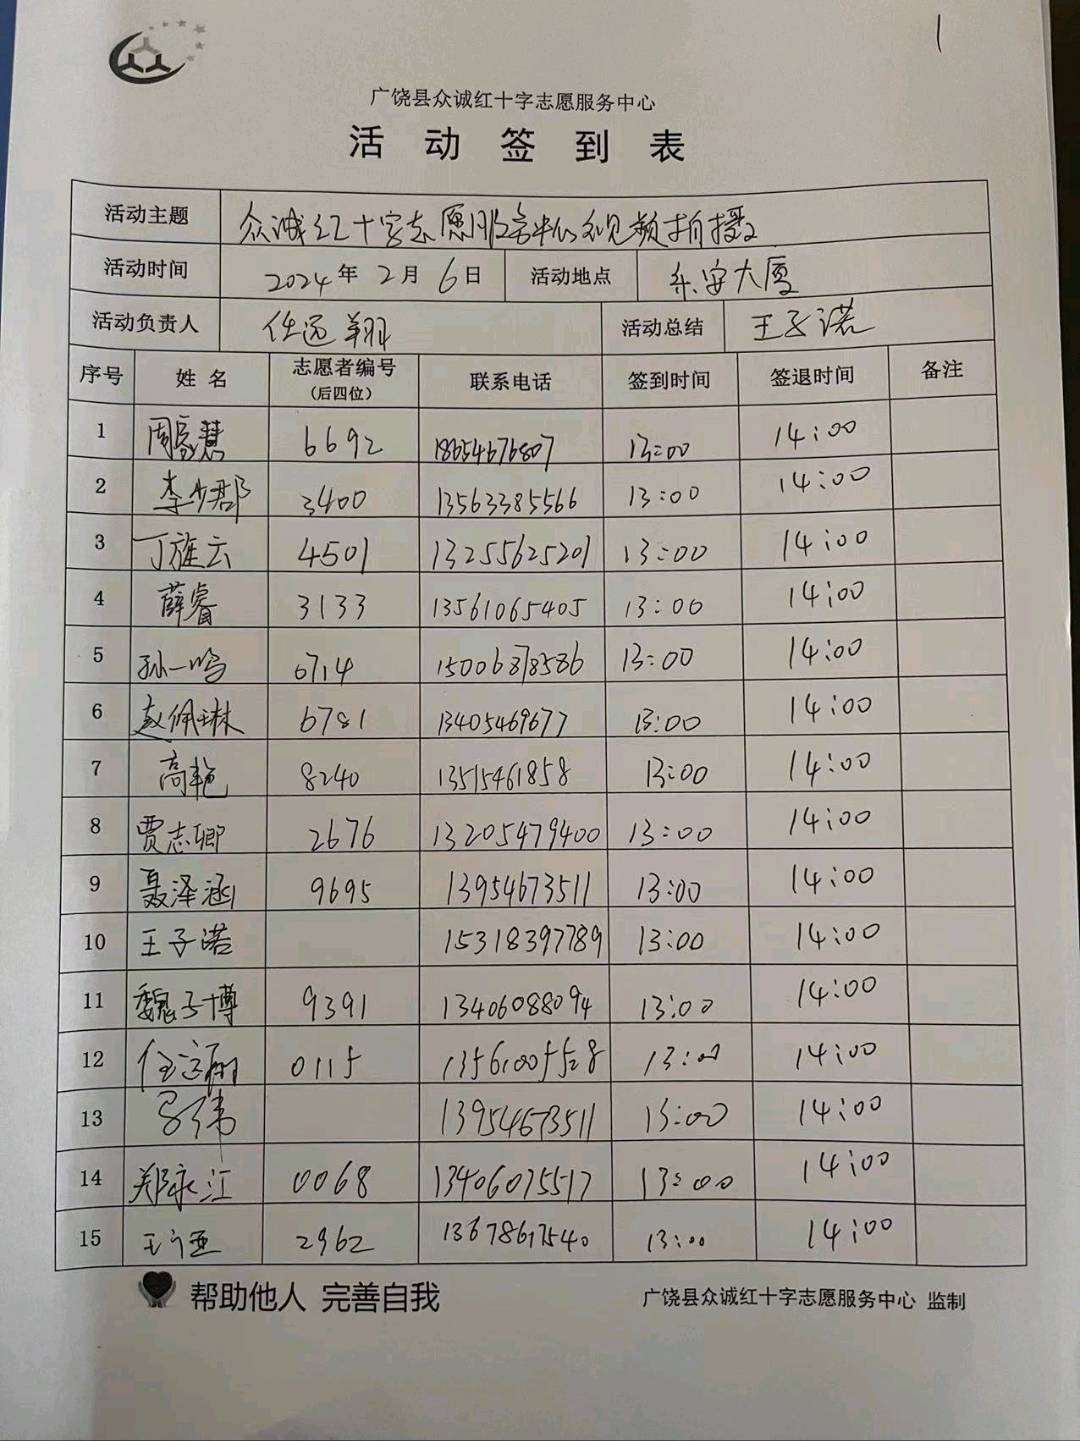 1
广饶县众诚红十字志愿服务中心
活动签到表
活动主题 众诚红十字志愿服务中心视频拍摄
活动时间 2024年2月6日 活动地点 东安大厦
活动负责人 任远翔 活动总结 王子诺
序号 姓名 志愿者编号(后四位) 联系电话 签到时间 签退时间 备注
1 周家慧 6692 18654676807 13:00 14:00
2 李少郡 3400 13563385566 13:00 14:00
3 丁旌云 4501 13255625201 13:00 14:00
4 薛睿 3133 13561065405 13:00 14:00
5 孙一鸣 6714 15006878586 13:00 14:00
6 赵佩琳 6781 13405469677 13:00 14:00
7 高艳 8240 13515461858 13:00 14:00
8 贾志卿 2676 13205479400 13:00 14:00
9 聂泽涵 9695 13954673511 13:00 14:00
10 王子诺 15318397789 13:00 14:00
11 魏子博 9391 13406088094 13:00 14:00
12 任远翔 0115 13561005528 13:00 14:00
13 吕伟 13954673511 13:00 14:00
14 郑永江 0068 13406075517 13:00 14:00
15 2962 13678617540 13:00 14:00
帮助他人 完善自我
广饶县众诚红十字志愿服务中心 监制